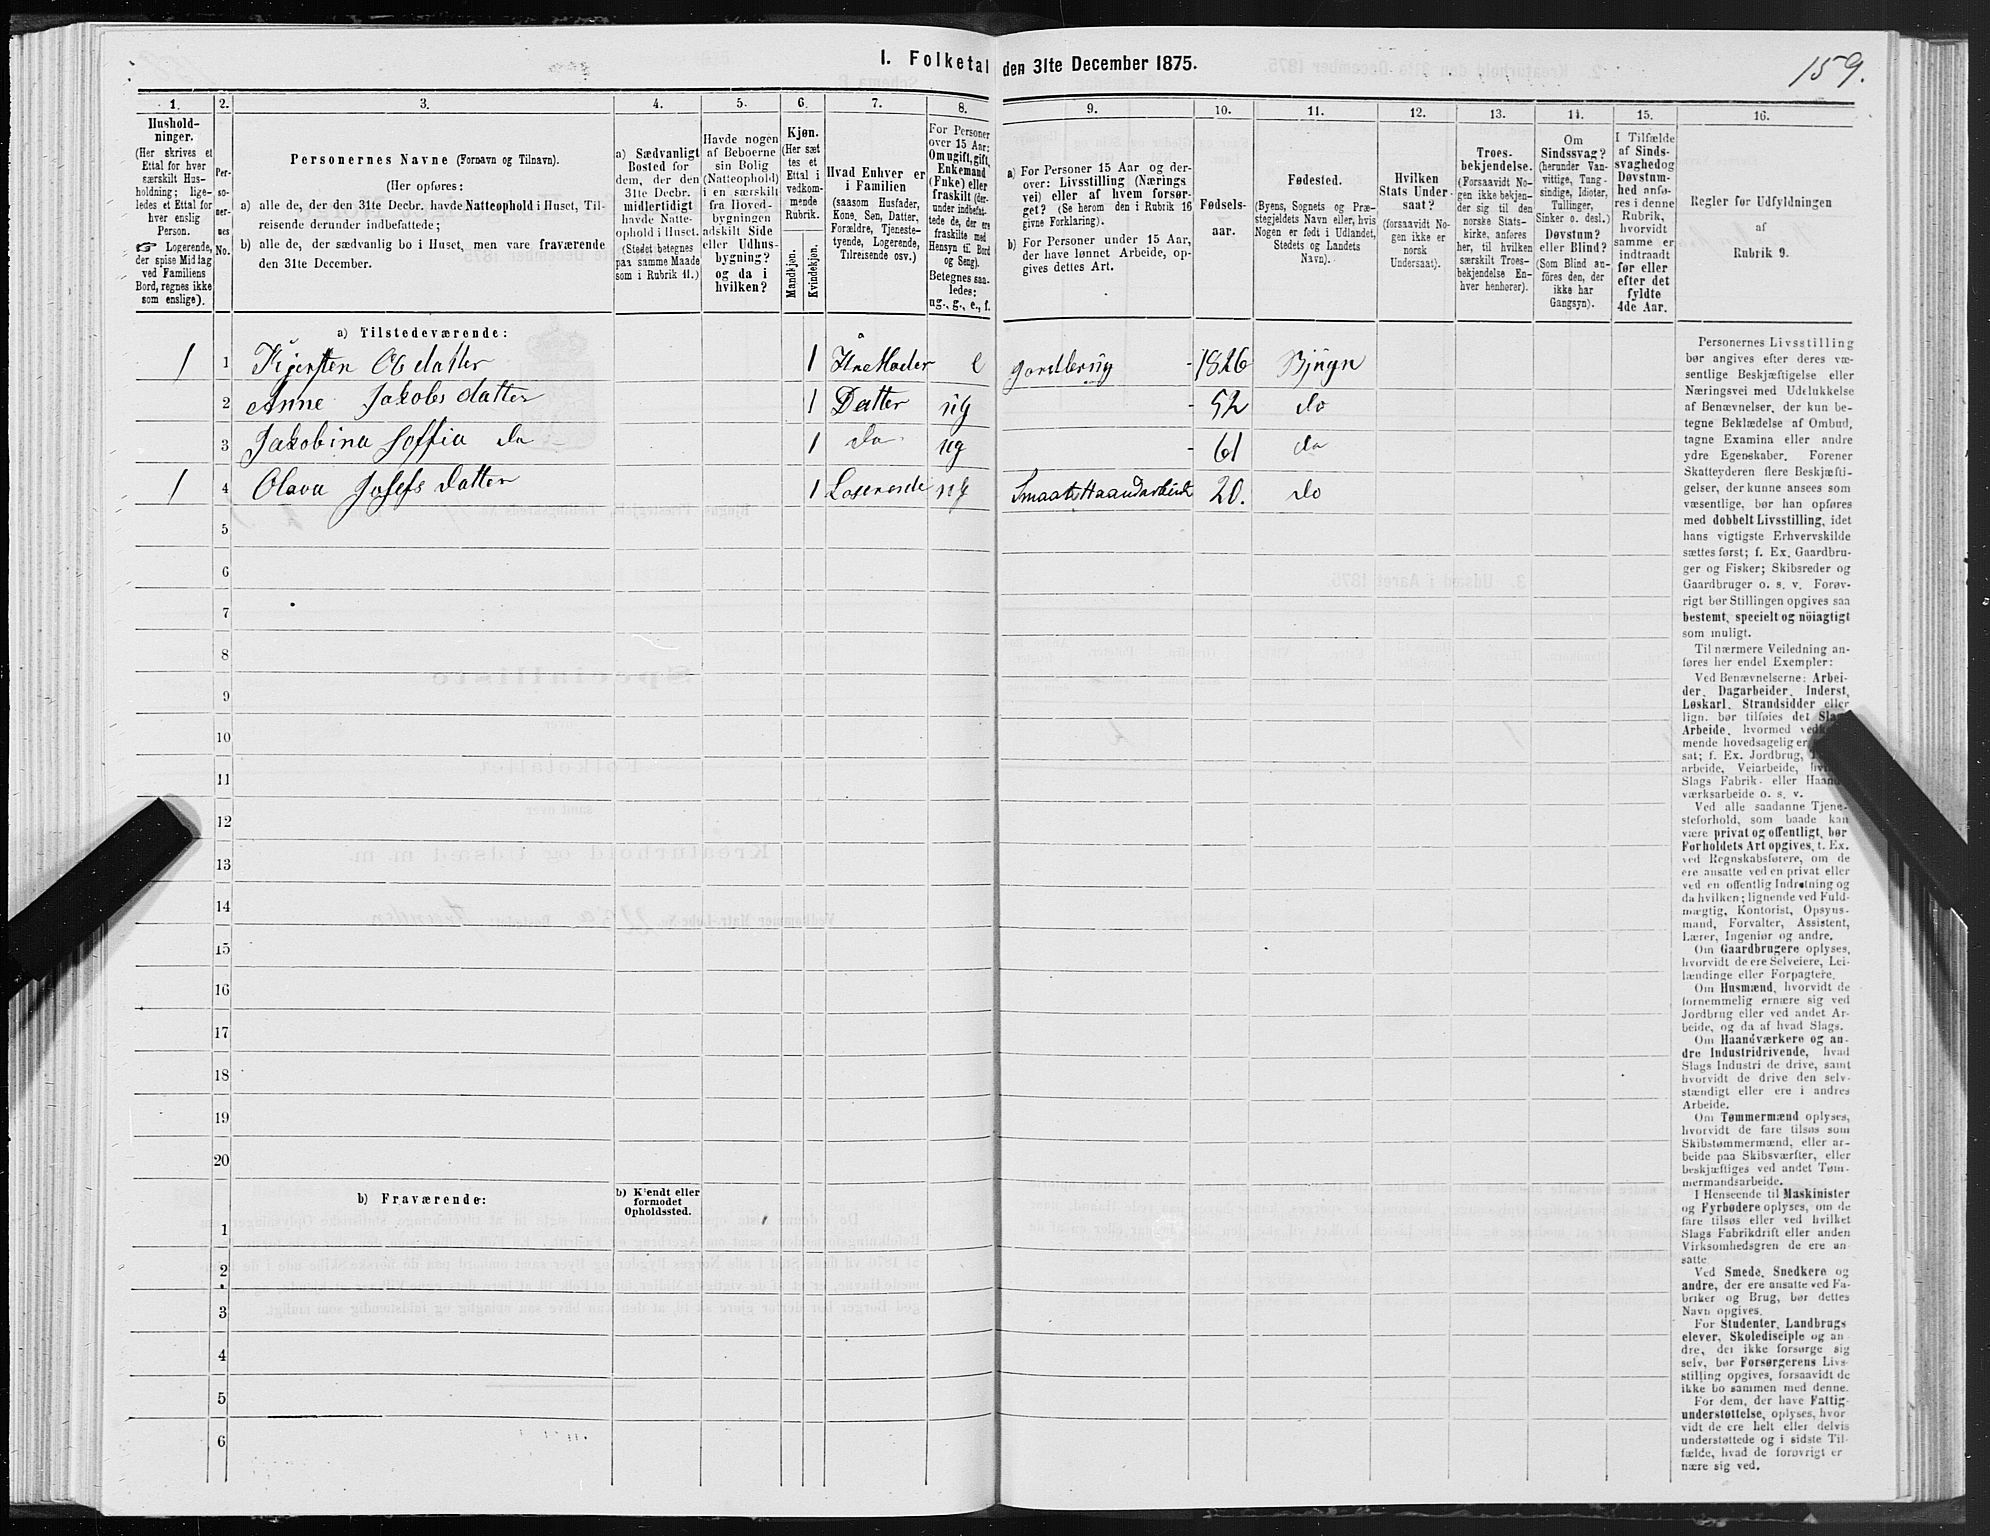 I. Folketal den 31te December 1875.
159.
1. 2. 3. 4. 5. 6. 7. 8. 9. 10. 11. 12. 13. 14. 15. 16.
Hushold-
ninger.
(Her skrives et
Ettal for hver
særskilt Hus-
holdning; lige-
ledes et Ettal for
hver enslig
Person.
☞ Logerende,
der spise Middag
ved Familiens
Bord, regnes ikke
som enslige).
Per-
so-
ner-
nes
No.
Personernes Navne (Fornavn og Tilnavn).
(Her opføres:
a) alle de, der den 31te Decbr. havde Natteophold i Huset, Til-
reisende derunder indbefattede;
b) alle de, der sædvanlig bo i Huset, men vare fraværende
den 31te December.
a) Sædvanligt
Bosted for
dem, der den
31te Decbr.
midlertidigt
havde Natte-
ophold i Huset.
(Stedet betegnes
paa samme Maade
som i Rubrik 11.)
Havde nogen
af Beboerne
sin Bolig
(Natteophold)
i en særskilt
fra Hoved-
bygningen
adskilt Side
eller Udhus-
bygning?
og da i
hvilken?
Kjøn.
(Her sæt
tes et
Ettal i
vedkom-
mende
Rubrik.
Mandkjøn.
Kvindekjøn.
Hvad Enhver er
i Familien
(saasom Husfader,
Kone, Søn, Datter,
Forældre, Tjeneste-
tyende, Logerende,
Tilreisende osv.)
For Personer
over 15 Aar:
Om ugift, gift,
Enkemand
(Enke) eller
fraskilt (der-
under indbefat-
tede de, der ere
fraskilte med
Hensyn til Bord
og Seng).
Betegnes saa-
ledes:
ug., g., e., f.
a) For Personer 15 Aar og der-
over: Livsstilling (Nærings
vei) eller af hvem forsør-
get? (Se herom den i Rubrik 16
givne Forklaring).
b) For Personer under 15 Aar,
der have lønnet Arbeide, op-
gives dettes Art.
Fødsels-
aar.
Fødested.
(Byens, Sognets og Præ-
stegjeldets Navn eller, hvis
Nogen er født i Udlandet,
Stedets og Landets
Navn).
Hvilken
Stats Under-
saat?
(forsaavidt No-
gen ikke er
norsk
Undersaat).
Troes-
bekjendelse.
(Forsaavidt No-
gen ikke bekjen-
der sig til den
norske Stats-
kirke, anføres
her, til hvilken
særskilt Troes-
bekjendelse En-
hver henhører).
Om
Sindssvag?
(herunder Van-
vittige, Tung-
sindige, Idioter,
Tullinger,
Sinker o. desl.)
Døvstum?
eller Blind?
(Som Blind an-
føres den, der
ikke har
Gangsyn).
I Tilfælde
af Sinds-
svaghed og
Døvstum-
hed anfø-
res i denne
Rubrik,
hvorvidt
samme er
indtraadt
før eller
efter det
fyldte
4de Aar.
Regler for Udfyldningen
af
Rubrik 9.
a) Tilstedeværende:
1 1 Kjersten Olsdatter 1 Hus Moder e Jordbrug - 1826 Bjugn
2 Anne Jakobsdatter 1 Datter ug - 52 do
3 Jakobina Soffia do 1 do ug - 61 do
1 4 Olava Josefsdatter 1 Loserende ug Smaat Haandarbeide 20. do
5
6
7
8
9
10
11
12
13
14
15
16
17
18
19
20
b) Fraværende:
b) Kjendt eller
formodet
Opholdssted.
1
2
3
4
5
6
Personernes Livsstilling
bør angives efter deres væ-
sentlige Beskjæftigelse eller
Næringsvei med Udelukkelse
af Benævnelser, der kun be-
tegne Beklædelse af Ombud,
tagne Examina eller andre
ydre Egenskaber. Forener
Skatteyderen flere Beskjæfti-
gelser, der kunne ansees som
væsentlige, bør han opføres
med dobbelt Livsstilling, idet
hans vigtigste Erhvervskilde
sættes først; f. Ex. Gaardbru-
ger og Fisker; Skibsreder og
Gaardbruger o. s. v. Forøv-
rigt bør Stillingen opgives saa
bestemt, specielt og nöiagtigt
som muligt.
Til nærmere Veiledning an-
føres her endel Exempler:
Ved Benævnelserne: Arbei-
der, Dagarbeider, Inderst,
Løskarl, Strandsidder eller
lign. bør tilføies det Slags
Arbeide, hvormed vedkom-
mende hovedsagelig er
sat; f. Ex. Jordbrug,
arbeide, Veiarbeide,
Slags Fabrik- eller Haand-
værksarbeide o. s. v.
Ved alle saadanne Tjene-
steforhold, som baade kan
være privat og offentligt, bør
Forholdets Art opgives, t. Ex.
ved Regnskabsførere, om de
ere ansatte ved en privat eller
ved en offentlig Indretning og
da hvilken; lignende ved Fuld-
mægtig, Kontorist, Opsyns-
mand, Forvalter, Assistent,
Lærer, Ingeniør og andre.
Om Gaardbrugere oplyses,
hvorvidt de ere Selveiere, Lei-
lændinge eller Forpagtere.
Om Husmænd, hvorvidt de
fornemmelig ernære sig ved
Jordbrug eller ved andet Ar-
beide, og da af hvad Slags.
Om Haandværkere og an-
dre Industridrivende, hvad
Slags Industri de drive, samt
hvorvidt de drive den selv-
stændigt eller ere i andres
Arbeide.
Om Tømmermænd oplyses,
hvorvidt de fare tilsøs som
Skibstømmermænd, eller ar-
beide paa Skibsværfter, eller
beskjæftiges ved andet Tøm-
mermandsarbeide.
I Henseende til Maskinister
og Fyrbødere oplyses, om de
fare tilsøs eller ved hvilket
Slags Fabrikdrift eller anden
Virksomhedsgren de ere an-
satte.
Ved Smede, Snedkere og
andre, der ere ansatte ved Fa-
briker og Brug, bør dettes
Navn opgives.
For Studenter, Landbrugs
elever, Skoledisciple og an-
dre, der ikke forsørge sig
selv, bør Forsørgerens Livs-
stilling opgives, forsaavidt de
ikke bo sammen med denne.
For dem, der have Fattig-
understøttelse, oplyses, hvor
vidt de ere helt eller delvis
understøttede og i sidste Til-
fælde, hvad de forøvrigt er
nære sig ved.